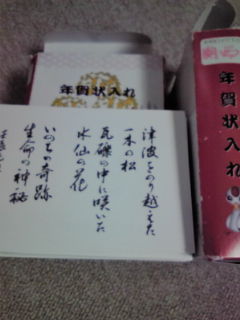 年賀状入れ
津波をのり越えた
一本の松
瓦礫の中に咲いた
水仙の花
いのちの奇跡
生命の神秘
年賀状入れ